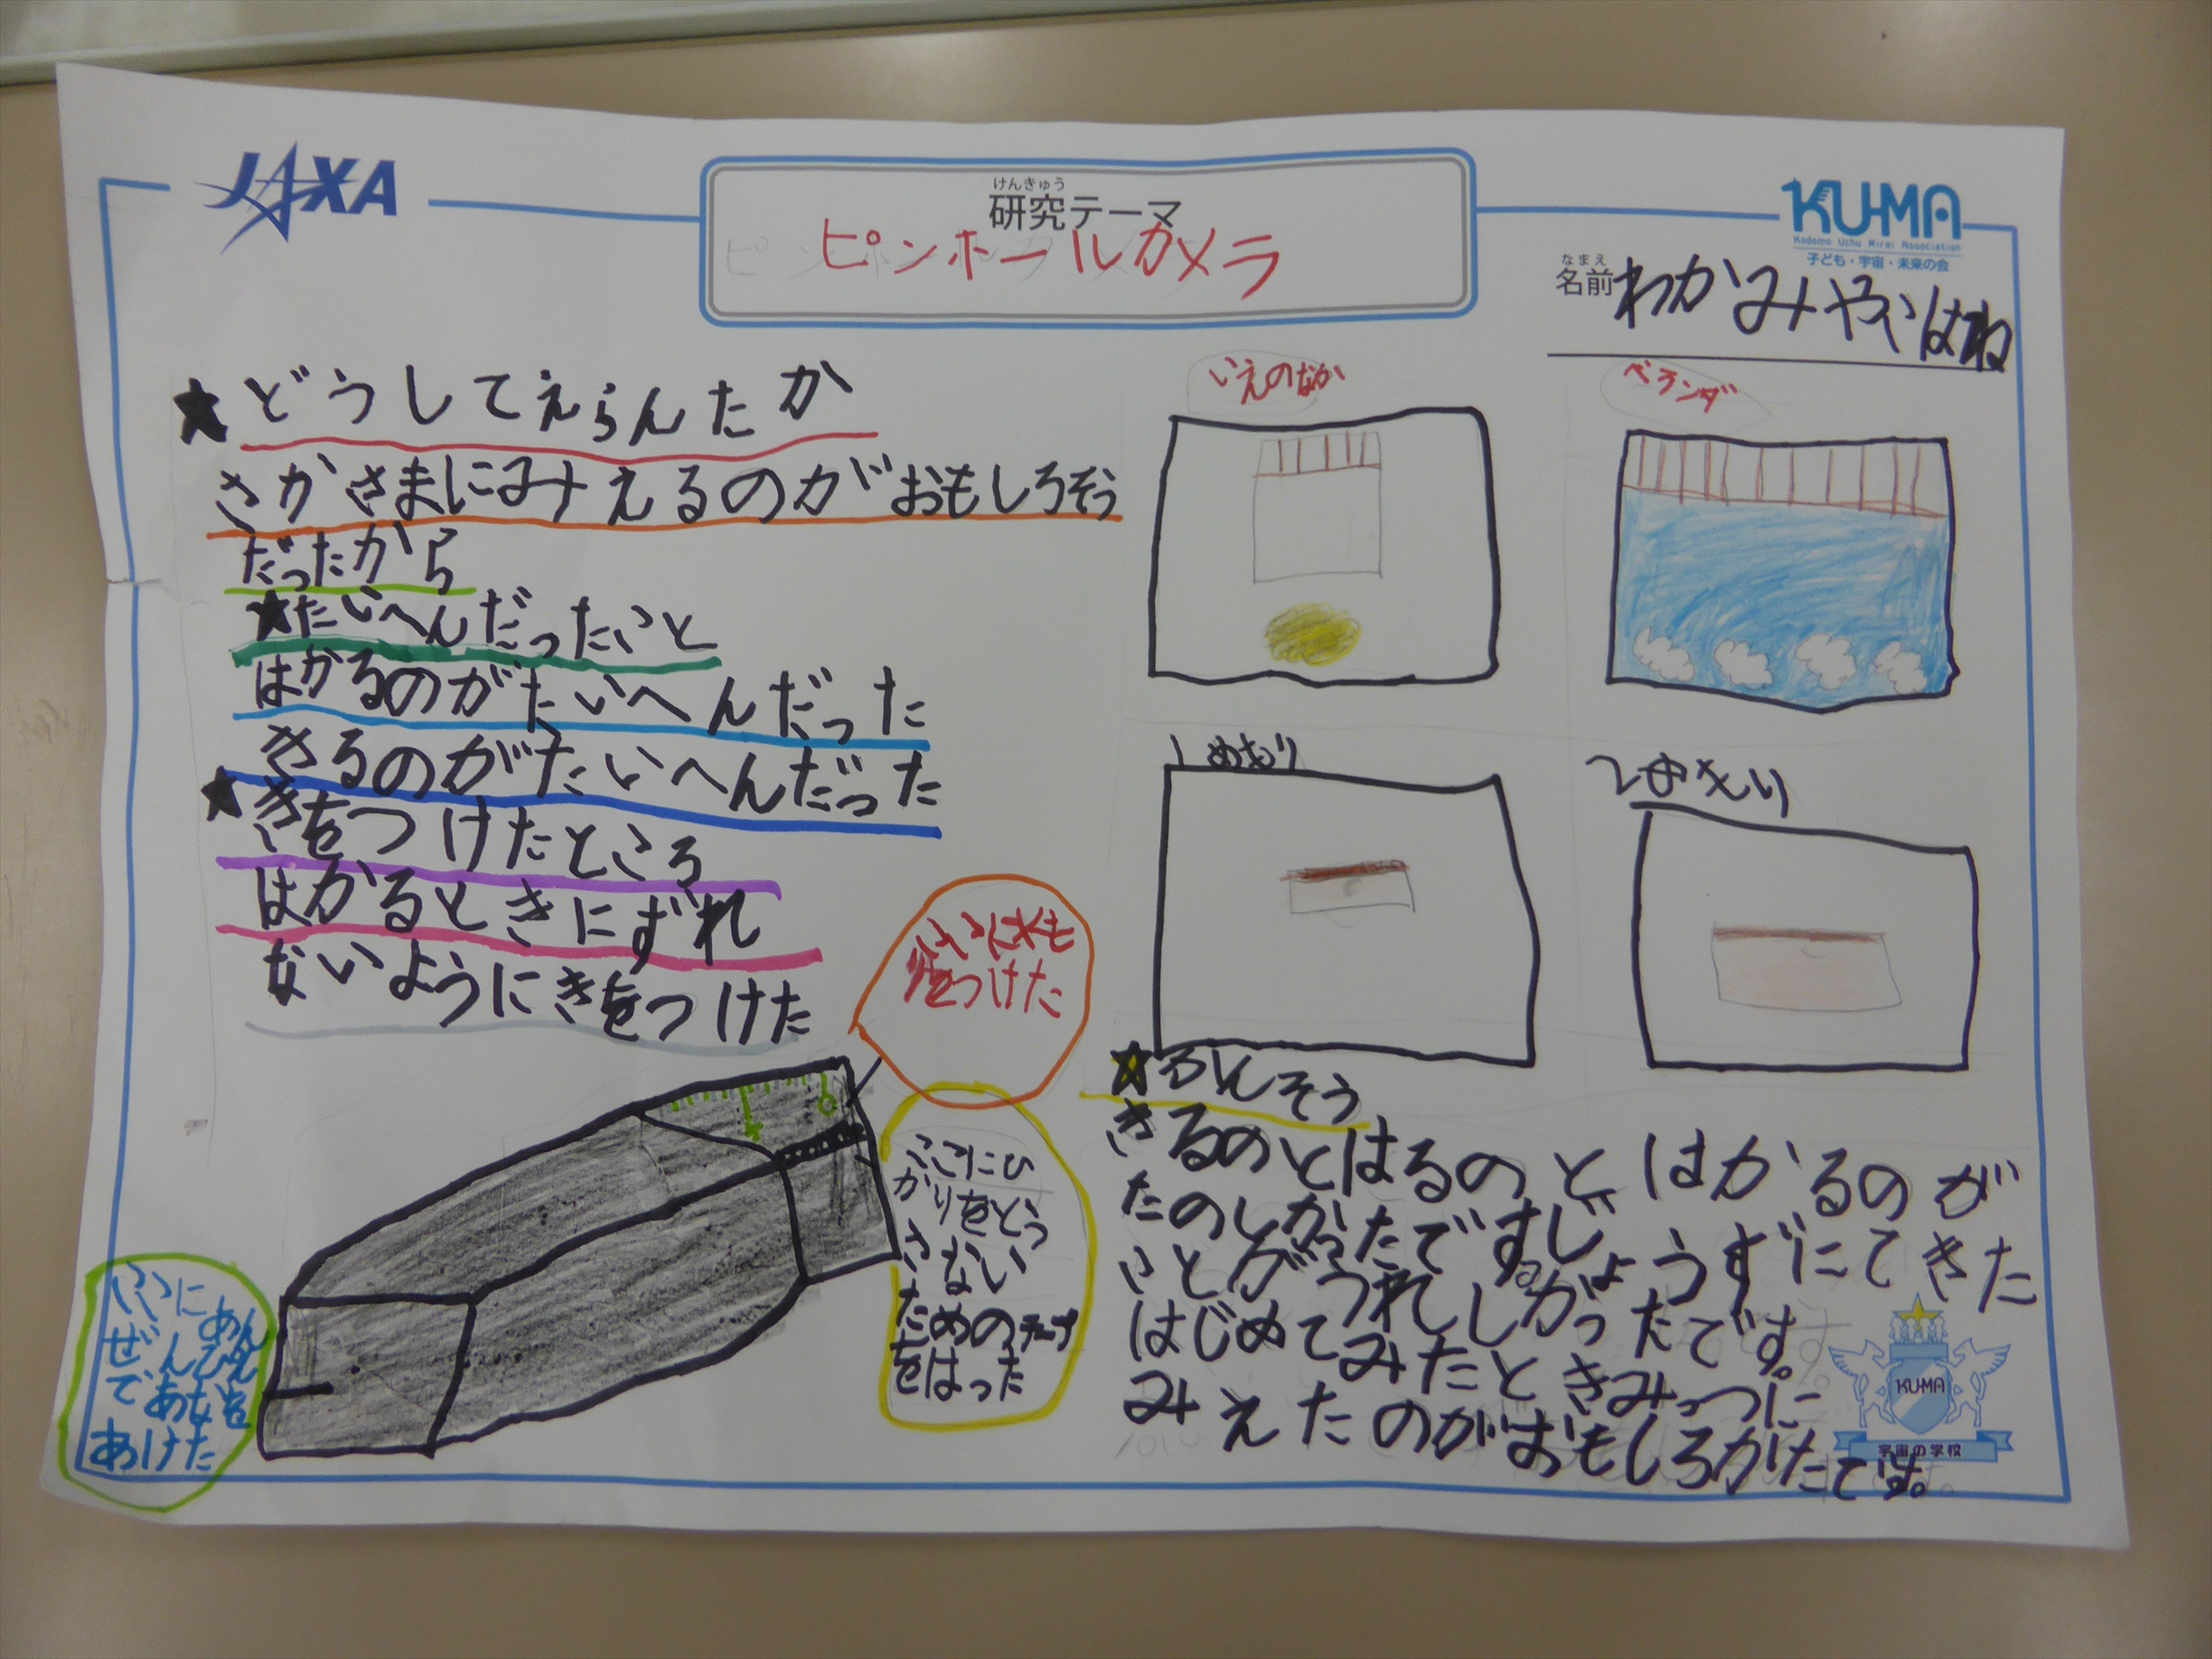 JAXA
けんきゅう
研究テーマ
ピンホールカメラ
KU-MA
Kodomo Uchu Mirai Association
子ども・宇宙・未来の会
なまえ
名前
わかみや
★どうしてえらんたか
さかさまにみえるのがおもしろそう
だったから
★たいへんだったこと
はかるのがたいへんだった
きるのがたいへんだった
★きをつけたところ
はかるときにずれ
ないようにきをつけた
いえのなか
ベランダ
1めもり
めもり
つけた
ここにひ
かりをとう
さない
ための
をはった
ここに
あけた
★かんそう
きるのとはるのと、はかるのが
たのしかったです。じょうずにてきた
ことがうれしかったです。
はじめてみたときみっつに
みえたのがおもしろかったです。
KU-MA
宇宙の学校